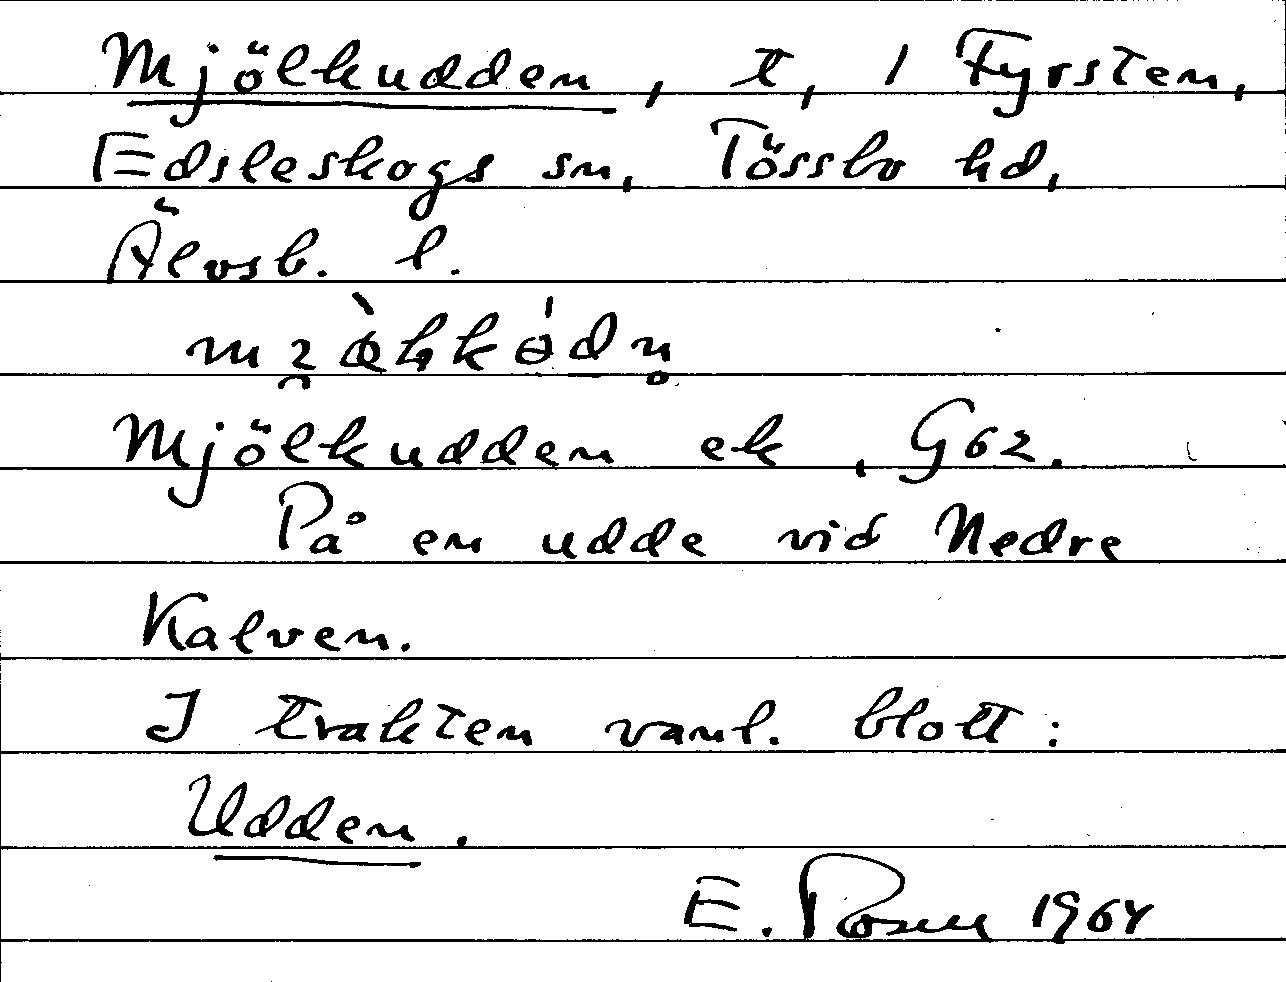 Mjölkudden, t, 1 Fyrsten,
Edsleskogs sn, Tössbo hd,
Älvsb. l.
Mjölkudden ek, G62.
På en udde vid Nedre
Kalven.
I trakten vanl. blott:
Udden.
E. Rosell 1964